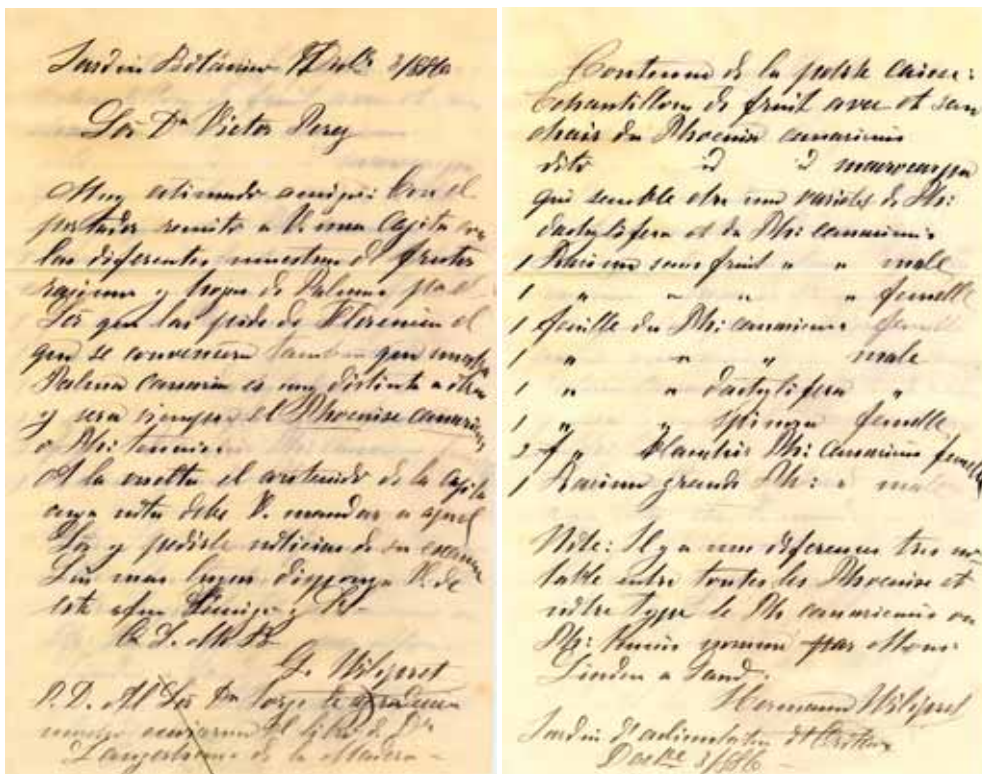 Jardin Botánico
Sor Dn Victor Perez
Muy estimado amigo: Con el
portador remito a V. una Cajita con
las diferentes muestras de frutos
racimos y hojas de Palmas pa el
Sor que las pide de Florencia el
que se convencera tambien que nuestra
Palma canaria es muy distinta a otras
y sera siempre el Phoenise canariensis
o Ph: tenuis.
A la vuelta el contenido de la Cajita
cuya nota debe V. mandar a aquel
Sor y pedirle noticias de su examen
Sin mas luego disponga V. de
este afmo Amigo y
Q. B. M. B.
G. Wildpret
P. D. Al Sor Dn Jorge le
el libro de Dn
de la Madera
Contenu de la petite caisse:
Echantillons de fruit avec et sans
chair du Phoenix canariensis
dito id id macrocarpa
qui semble etre une varieté de Ph:
dactylifera et du Ph: canariensis
1 Racime sans fruit " " male
1 " " " " femelle
1 feuille du Ph: canariensis femelle
1 " " " male
1 " " dactylifera "
1 " " femelle
2 f " Ph: canariensis femelle
1 Racime grande Ph: " male
Note: Il y a une difference tres no-
table entre toutes les Phoenise et
nôtre type le Ph canariensis ou
Ph: tenuis nommé par Mons:
Linden a Gand.
Hermann Wildpret
Jardin d'aclimatation d'Orotava